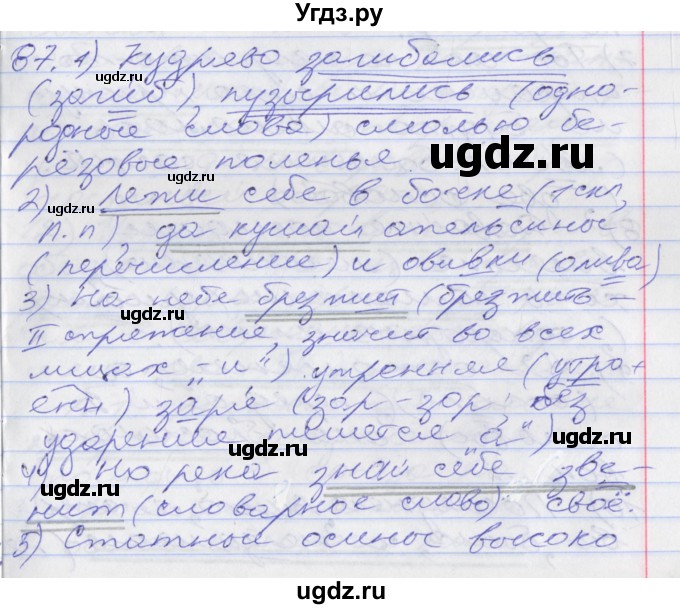 Угдз.ру
87. 1) Кудряво загибались
(загиб), пузырились (одно-
родные слова) смолью бе-
рёзовые поленья.
2) Лежи себе в бочке (1 скл,
п.п), да кушай апельсины
(перечисление) и оливки (олива)
3) На небе брезжит (брезжить –
II спряжение, значит во всех
лицах „и") утренняя (утро +
енн) заря (зор-зар, без
ударения пишется „а")
4) Но река знай себе зве-
нит (словарное слово) своё.
5) Статные осины высоко
ugdz.ru
ugdz.ru
ugdz.ru
ugdz.ru
ugdz.ru
ugdz.ru
ugdz.ru
ugdz.ru
ugdz.ru
ugdz.ru
ugdz.ru